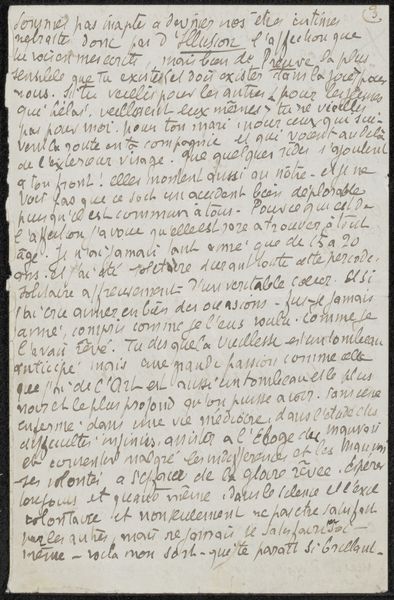 3
sommes pas inapte a deviner nos êtres intimes
ne traite donc pas d'Illusion l'affection que
tu vois en mes écrits, mais bien de Preuve la plus
sensible que tu existes et dois exister dans la joie pour
nous. Si tu vieillis pour les autres, pour
qui hélas, vieillissent eux mêmes, tu ne vieillis
pas pour moi, pour ton mari, pour ceux qui sui-
vent la route en ta compagnie et qui voient au delà
de l'extérieur visage. Que quelques rides s'ajoutent
a ton front! elles montent aussi au nôtre - et je ne
vois pas que ce soit un accident bien déplorable
puisqu'il est commun a tous. Pour ce qui est de
l'affection j'avoue qu'elle est rare a trouver a tout
âge. Je n'ai jamais tant aimé que de 15 a 20
ans. Et j'ai été solitaire durant toute cette période,
solitaire affreusement d'un véritable cœur. Et si
j'ai cru aimer en bien des occasions - fus-je jamais
aimé, compris comme je l'eus voulu, comme je
l'avais rêvé. Tu dis que la vieillesse est un tombeau
anticipé mais une grande passion comme celle
que j'ai de l'Art est aussi un tombeau et le plus
noir et le plus profond qu'on puisse avoir. Sans cesse
enfermé dans une vie médiocre, dans l'étude des
difficultés infinies, assister a l'éloge des mauvais
et converser malgré les indifférences et les mauvai-
ses volontés a s'efforcer de la gloire rêvée. Espérer
toujours et quand même, dans le silence et l'exil
volontaire et non seulement ne pas être satisfait
par les autres, mais ne jamais se satisfaire soi-
même - voila mon sort - qui te paraît si brillant.